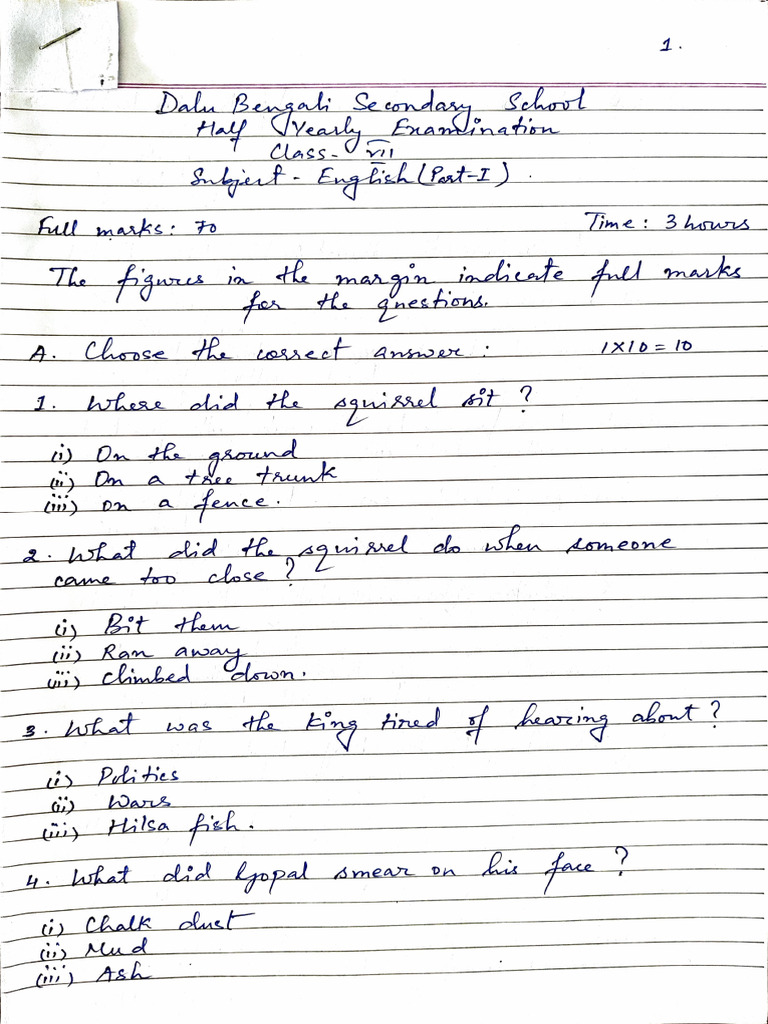 1.
Dalu Bengali Secondary School
Half Yearly Examination
Class - VII
Subject - English (Part-I).
Full marks: 70 Time: 3 hours
The figures in the margin indicate full marks
for the questions.
A. Choose the correct answer: 1×10=10
1. Where did the squirrel sit?
(i) On the ground
(ii) On a tree trunk
(iii) on a fence.
2. What did the squirrel do when someone
came too close?
(i) Bit them
(ii) Ran away
(iii) climbed down.
3. What was the king tired of hearing about?
(i) Politics
(ii) Wars
(iii) Hilsa fish.
4. What did Gopal smear on his face?
(i) Chalk dust
(ii) Mud
(iii) Ash